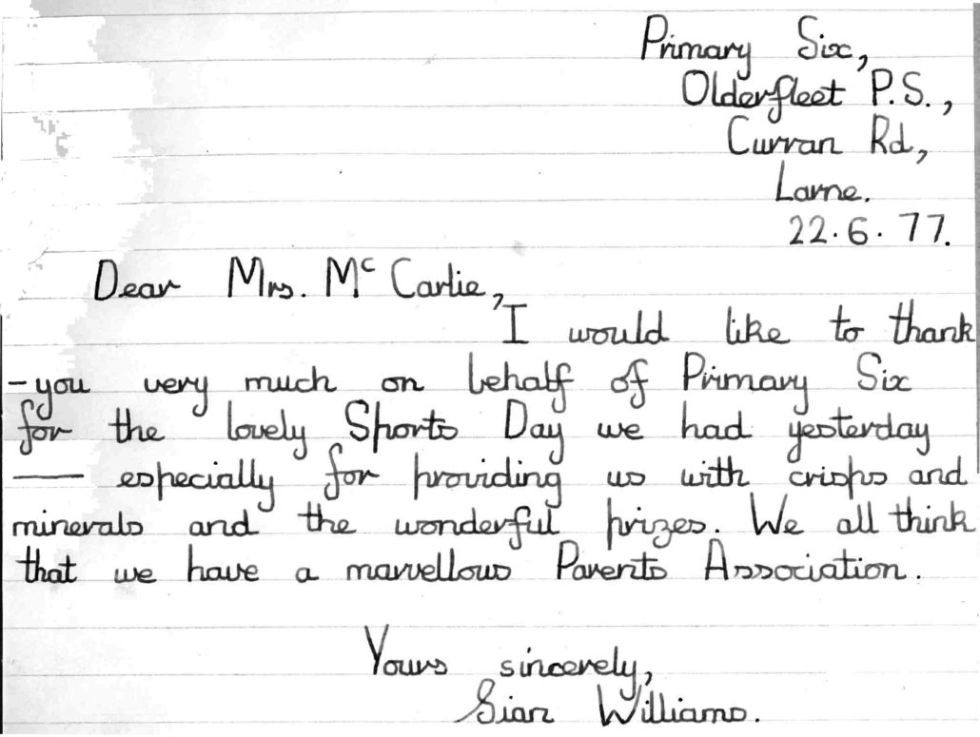 Primary Six,
Olderfleet P.S.,
Curran Rd,
Larne.
22.6.77.
Dear Mrs. McCarlie,
I would like to thank
-you very much on behalf of Primary Six
for the lovely Sports Day we had yesterday
— especially for providing us with crisps and
minerals and the wonderful prizes. We all think
that we have a marvellous Parents Association.
Yours sincerely,
Sian Williams.